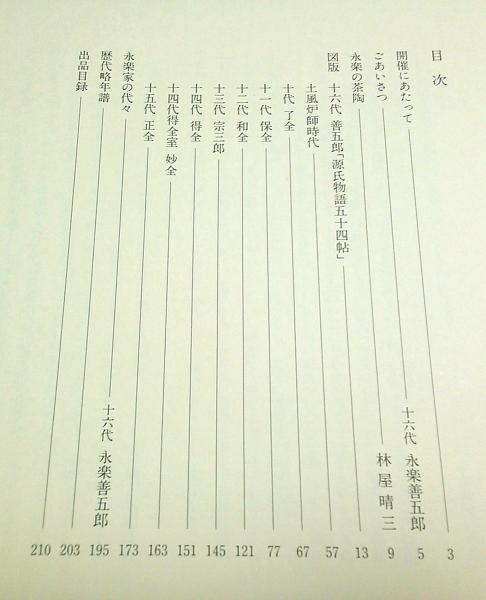 目次
開催にあたって 3
ごあいさつ 十六代 永楽善五郎 5
永楽の茶陶 林屋晴三 9
図版 十六代 善五郎「源氏物語五十四帖」 13
土風炉師時代 57
十代 了全 67
十一代 保全 77
十二代 和全 121
十三代 宗三郎 145
十四代 得全 151
十四代得全室 妙全 163
十五代 正全 173
永楽家の代々 十六代 永楽善五郎 195
歴代略年譜 203
出品目録 210